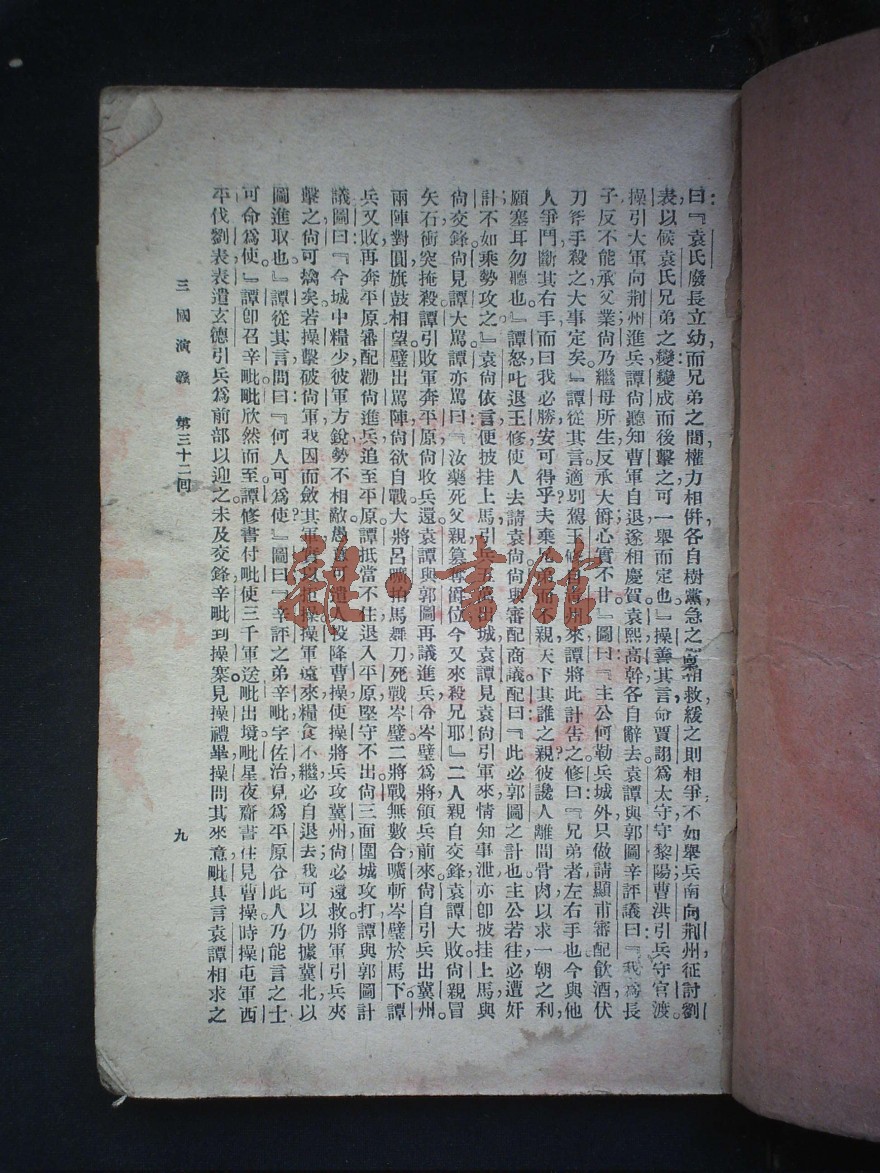 曰：『袁氏廢長立幼，而兄弟之間，權力相併，各自樹黨，急之則相救，緩之則相爭；不如舉兵南向荆州，征討劉
表，以候袁氏兄弟之變；變成而後擊之，可一舉而定也。』操善其言，命賈詡爲太守，守黎陽；曹洪引兵守官渡。
操引大軍向荆州進兵。譚尙聽知曹軍自退，遂相慶賀。袁熙高幹各自辭去。袁譚與郭圖辛評議曰：『我爲長
子，反不能承父業；尙乃繼母所生，反承大爵；心實不甘。』圖曰：『主公可勒兵城外，只做請顯甫審配飲酒，伏
刀斧手殺之，大事定矣。』譚從其言。適別駕王修自青州來，譚將此計告之。修曰：『兄弟者，左右手也。今與他
人爭鬥，斷其右手，而曰我必勝，安可得乎？夫棄兄弟而不親，天下其誰之親？彼讒人離間骨肉，以求一朝之利，
願塞耳勿聽也。』譚怒，叱退王修，使人去請袁尙。尙與審配商議。配曰：『此必郭圖之計也。主公若往，必遭奸
計；不如乘勢攻之。』袁尙依言，便披挂上馬，引兵五萬出城。袁譚見袁尙引軍來，情知事泄，亦卽披挂上馬，與
尙交鋒。尙見譚大罵。譚亦罵曰：『汝藥死父親，簒奪爵位，今又來殺兄耶！』二人親自交鋒，袁譚大敗。尙親冒
矢石，衝突掩殺。譚引敗軍奔平原，尙收兵還。袁譚與郭圖再議進兵，令岑璧爲將，領兵前來。尙自引兵出冀州。
兩陣對圓，旗鼓相望。璧出罵陣；尙欲自戰，大將呂曠，拍馬舞刀，死戰岑璧。二將戰無數合，曠斬岑璧於馬下。譚
兵又敗，再奔平原。審配勸尙進兵，追至平原。譚抵當不住，退入平原，堅守不出。尙三面圍城攻打。譚與郭圖計
議。圖曰：『今城中糧少，彼軍方銳，勢不相敵。愚意可遣人投降曹操，使操將兵攻冀州，尙必還救。將軍引兵夾
擊之，尙可擒矣。若操擊破尙軍，我因而斂其軍實以拒操。操軍遠來，糧食不繼，必自退去。我可以仍據冀北，以
圖進取也。』譚從其言，問曰：『何人可爲使？』圖曰：『辛評之弟辛毗，字佐治，見爲平原令。此人乃能言之士，
可命爲使。』譚卽召辛毗，毗欣然而至。譚修書付毗，使三千軍送毗出境。毗星夜齎書往見曹操。時操屯軍西
平伐劉表，表遣玄德引兵爲前部以迎之。未及交鋒，辛毗到操寨。見操禮畢，操問其來意，毗具言袁譚相求之
三國演義　第三十二回　九
雜·書館